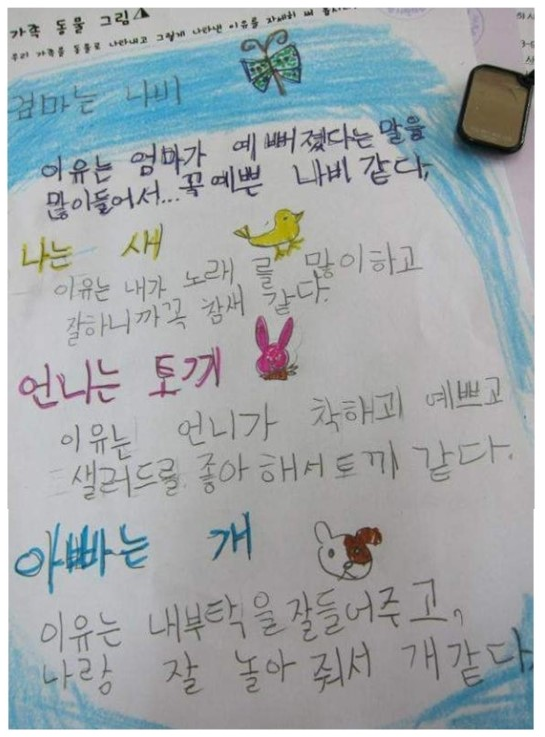 가족 동물 그림
우리 가족을 동물로 나타내고 그렇게 나타낸 이유를 자세히 써 봅시다
엄마는 나비
이유는 엄마가 예뻐졌다는 말을
많이들어서...꼭예쁜 나비 같다.
나는 새
이유는 내가 노래를 많이하고
잘하니까꼭 참새 같다.
언니는 토끼
이유는 언니가 착해괴 예쁘고
샐러드를 좋아해서토끼 같다.
아빠는 개
이유는 내부탁을잘들어주고,
나랑 잘 놀아 줘서 개같다.